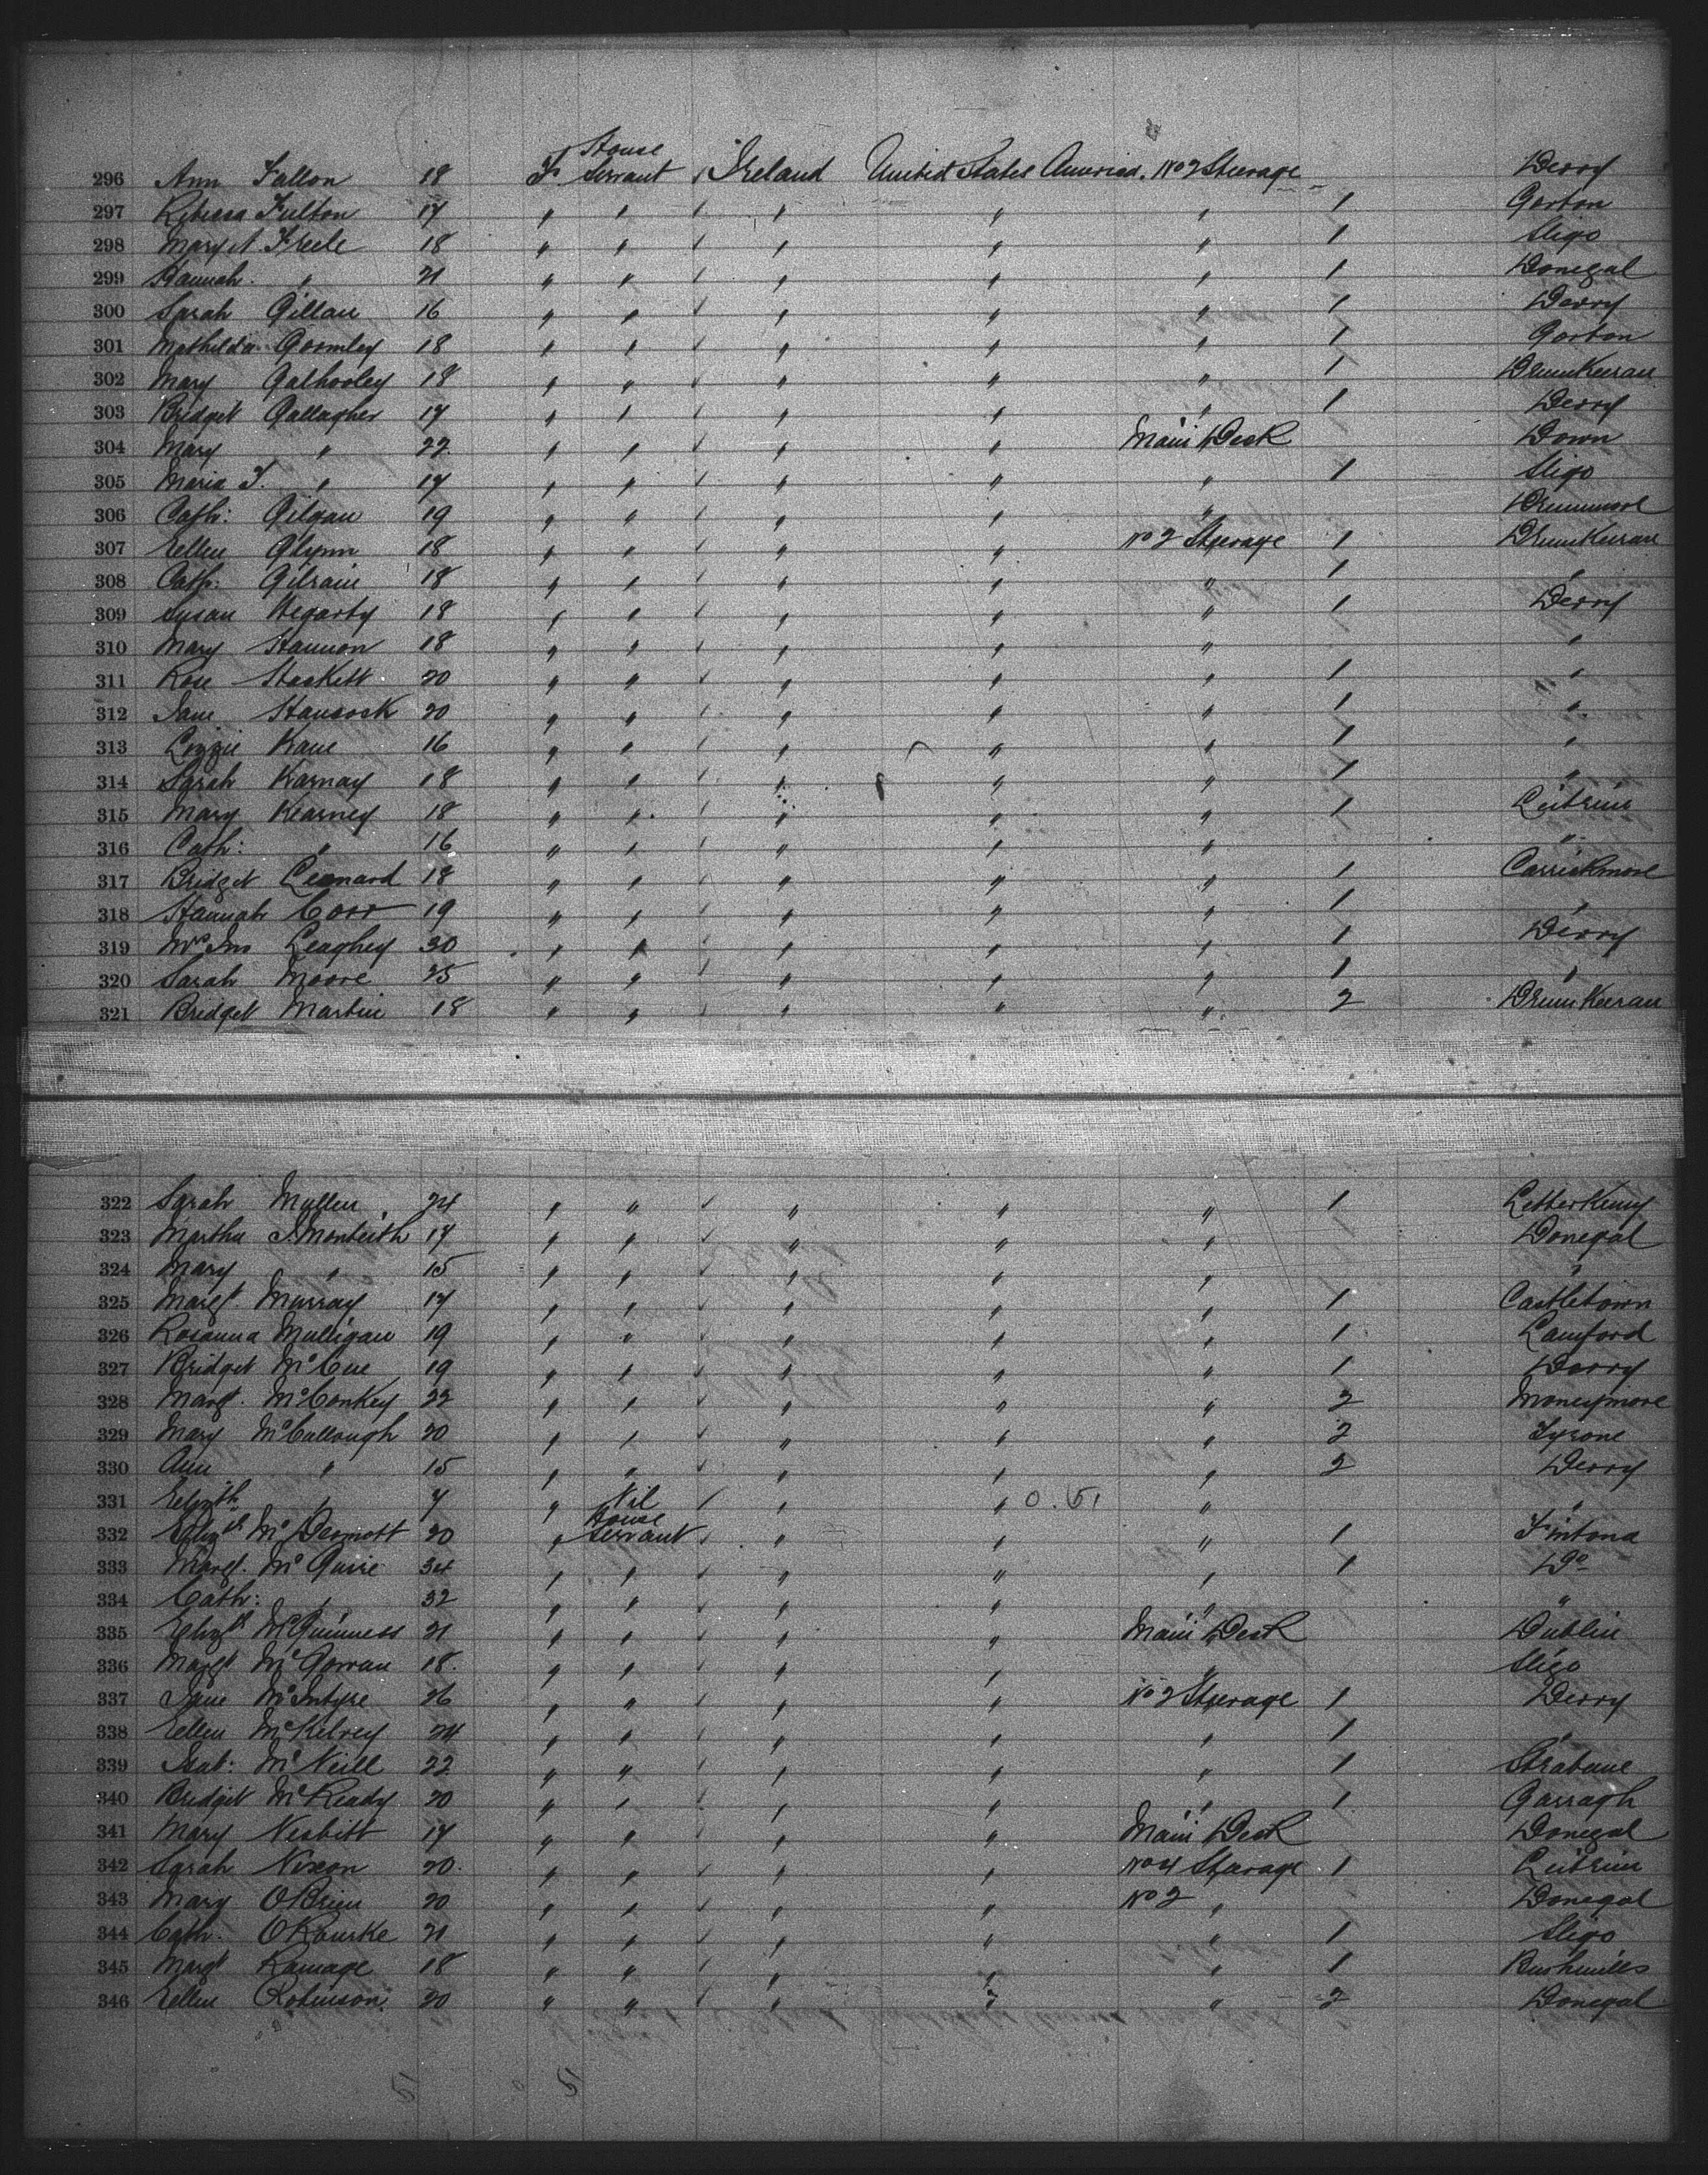 296 Ann Fallon 18 F House Servant Ireland United States America. No 2 Steerage Derry
297 Rebecca Fulton 17 " " " " " 1 Gorton
298 Mary A. Freele 18 " " " " " 1 Sligo
299 Hannah " 21 " " " " " 1 Donegal
300 Sarah Gillan 16 " " " " " 1 Derry
301 Mathilda Gormley 18 " " " " " 1 Gorton
302 Mary Galhooley 18 " " " " " 1 Drumkeeran
303 Bridget Gallagher 17 " " " " " 1 Derry
304 Mary " 22 " " " " Main Deck Down
305 Maria T. " 17 " " " " " 1 Sligo
306 Cath: Gilgan 19 " " " " " Drummore
307 Ellen Glynn 18 " " " " No 2 Steerage 1 Drumkeeran
308 Cath: Gilrain 18 " " " " " 1 "
309 Susan Hegarty 18 " " " " " 1 Derry
310 Mary Hannon 18 " " " " " "
311 Rose Haskett 20 " " " " " 1 "
312 Jane Hancock 20 " " " " " 1 "
313 Lizzie Kane 16 " " " " " 1 "
314 Sarah Karnay 18 " " " " " 1 "
315 Mary Kearney 18 " " " " " 1 Leitrim
316 Cath: " 16 " " " " " "
317 Bridget Leonard 18 " " " " " 1 Carrickmore
318 Hannah Corr 19 " " " " " 1 "
319 Mrs Jno Leaghey 30 " " " " " 1 Derry
320 Sarah Moore 25 " " " " " 1 "
321 Bridget Martin 18 " " " " " 2 Drumkeeran
322 Sarah Mullen 24 " " " " " 1 Letterkenny
323 Martha J. Monteith 17 " " " " " Donegal
324 Mary " 15 " " " " " "
325 Margt. Murray 17 " " " " " 1 Castletown
326 Rosanna Mulligan 19 " " " " " 1 Lanford
327 Bridget McCue 19 " " " " " 1 Derry
328 Margt. McConkey 22 " " " " " 2 Moneymore
329 Mary McCullough 20 " " " " " 2 Tyrone
330 Ann " 15 " " " " " 2 Derry
331 Elizth " 7 " Nil " " 0.51 " "
332 Elizth McDermott 20 " House Servant " " " 1 Fintona
333 Margt. McGuire 34 " " " " " 1 Do
334 Cath: " 32 " " " " " "
335 Elizth McGuinness 21 " " " " Main Deck Dublin
336 Margt McGowan 18 " " " " " Sligo
337 Jane McIntyre 26 " " " " No 2 Steerage 1 Derry
338 Ellen McKelvey 24 " " " " " 1 "
339 Isab: McNeill 22 " " " " " 1 Strabane
340 Bridget McReady 20 " " " " " 1 Garragh
341 Mary Nesbitt 17 " " " " Main Deck Donegal
342 Sarah Nixon 20 " " " " No 4 Steerage 1 Leitrim
343 Mary OBrien 20 " " " " No 2 " Donegal
344 Cath. ORourke 21 " " " " " 1 Sligo
345 Margt Ramage 18 " " " " " 1 Bushmills
346 Ellen Robinson 20 " " " " " 2 Donegal